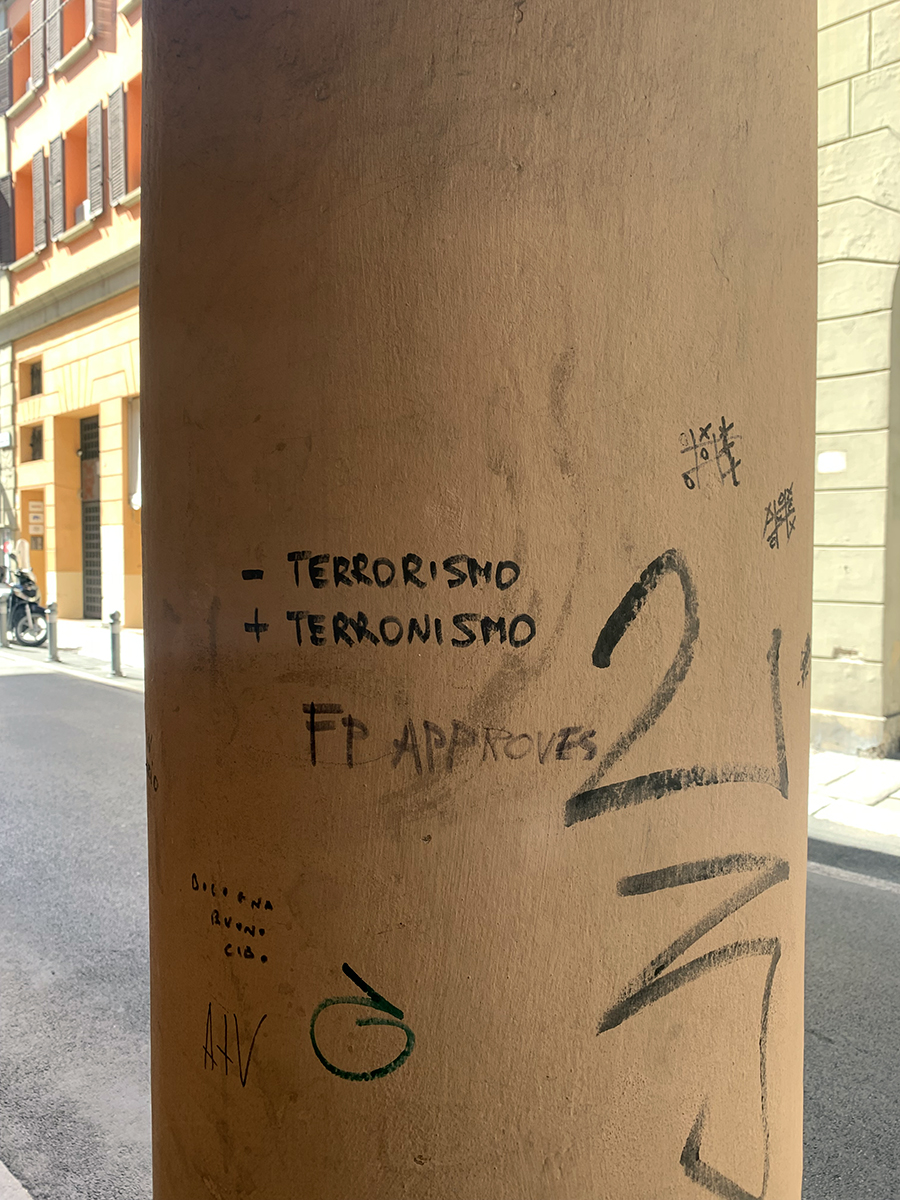 - TERRORISMO
+ TERRONISMO
FP APPROVES
BOLOGNA
BUONO
CIBO
A+V